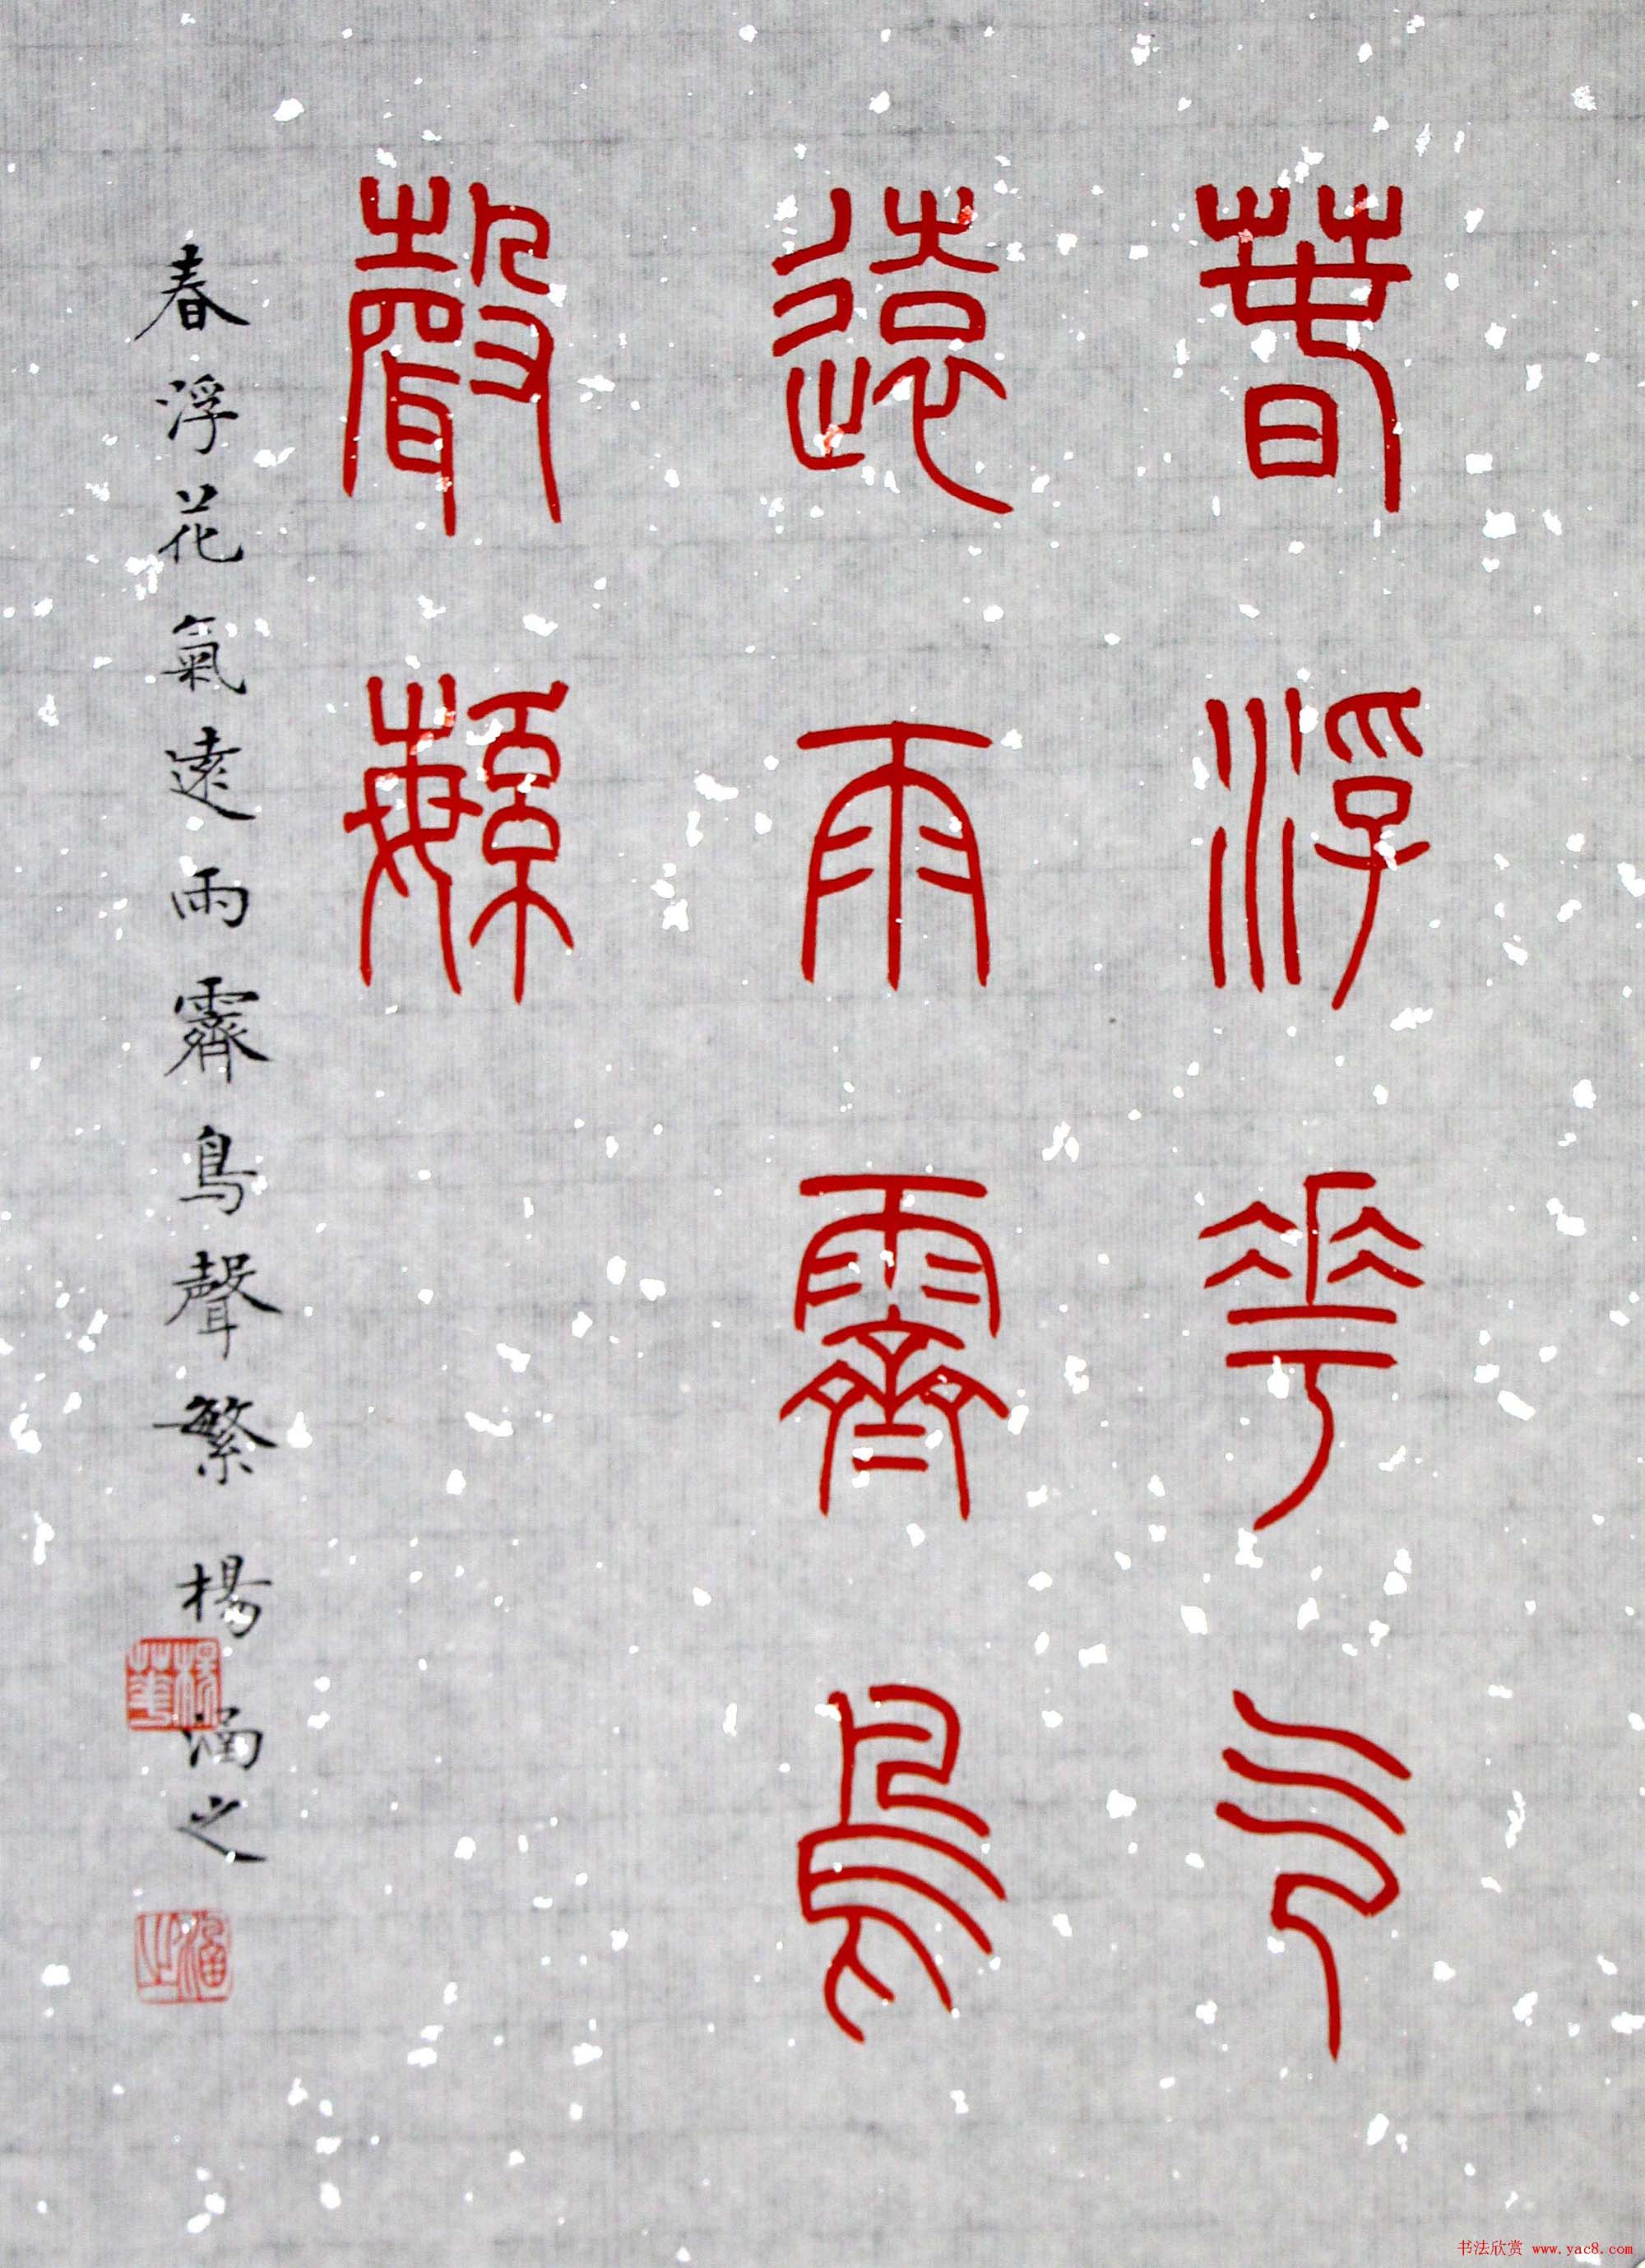 春浮華气
遠雨霽鳥
聲繁
春浮花氣遠雨霽鳥聲繁 楊涵之
楊華
涵之
书法欣赏 www.yac8.com